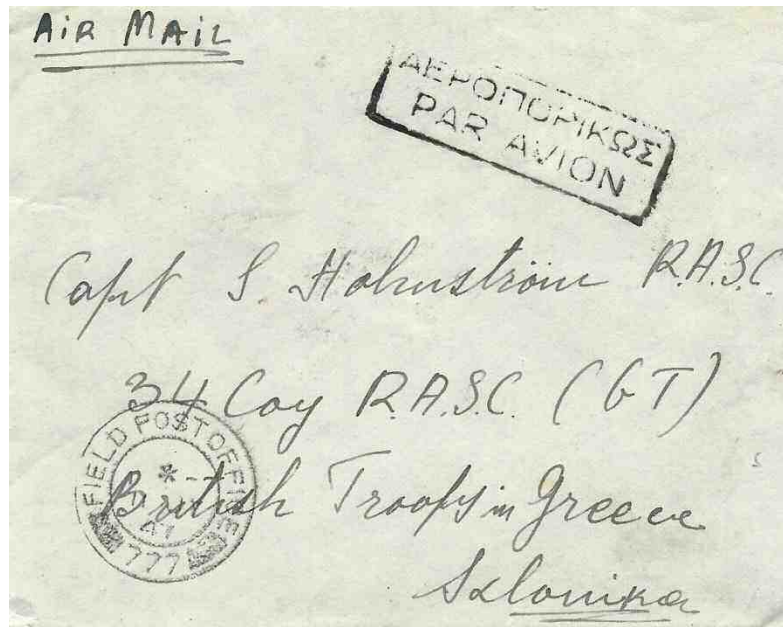 AiR MAiL
ΑΕΡΟΠΟΡΙΚΩΣ
PAR AVION
Capt S. Holmström R.A.S.C.
34 Coy R.A.S.C. (GT)
British Troops in Greece
Salonika
FIELD POST OFFICE
777